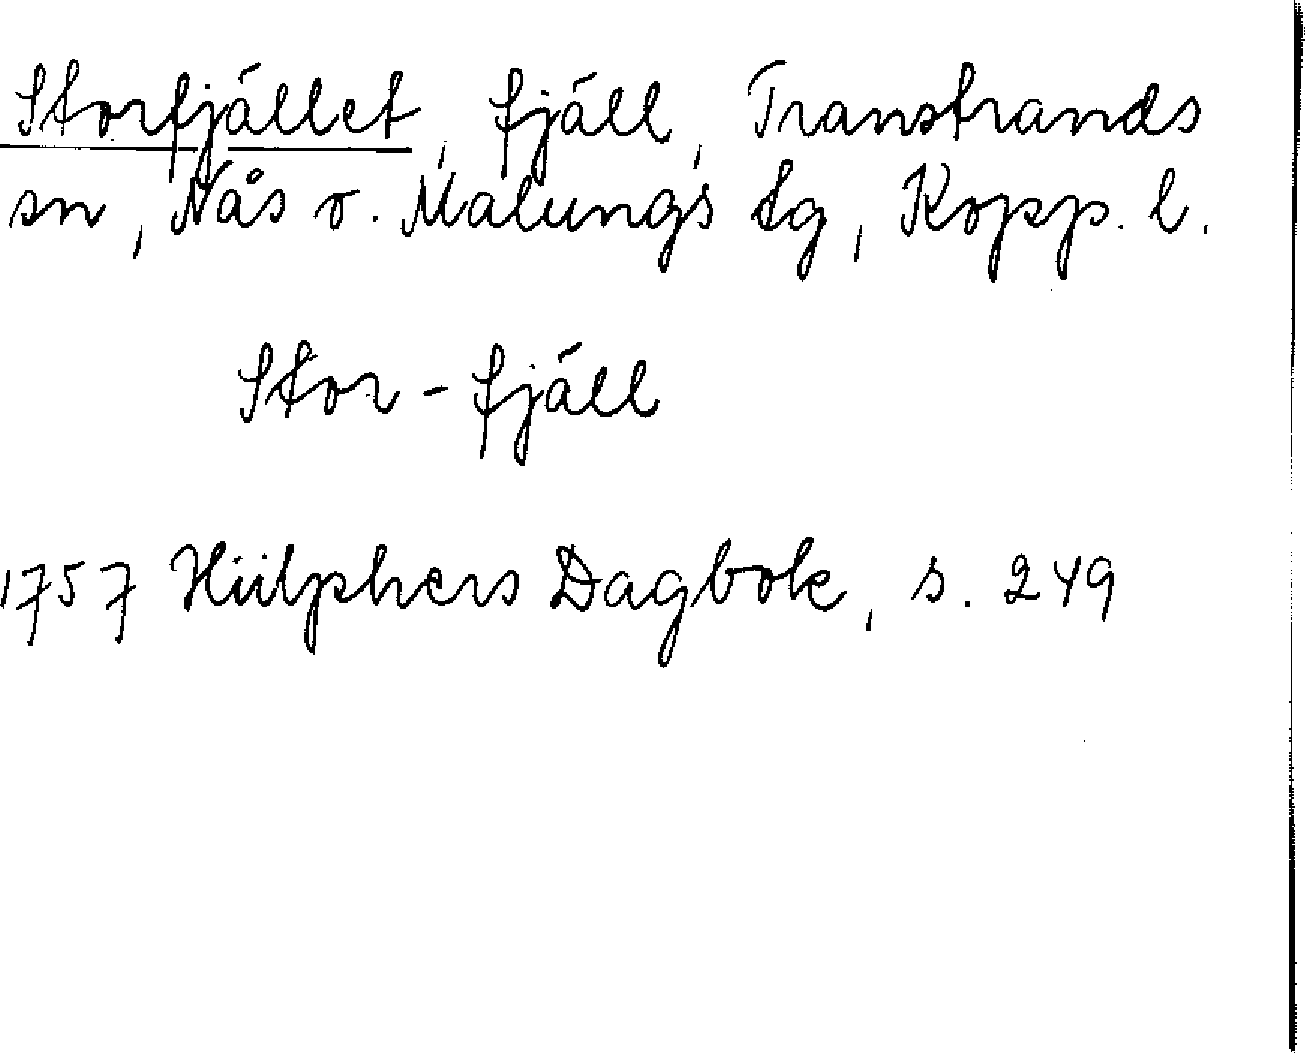 Storfjället, fjäll, Transtrands
sn, Nås o. Malungs tg, Kopp. l.
Stor-fjäll
1757 Hülphers Dagbok, s. 249